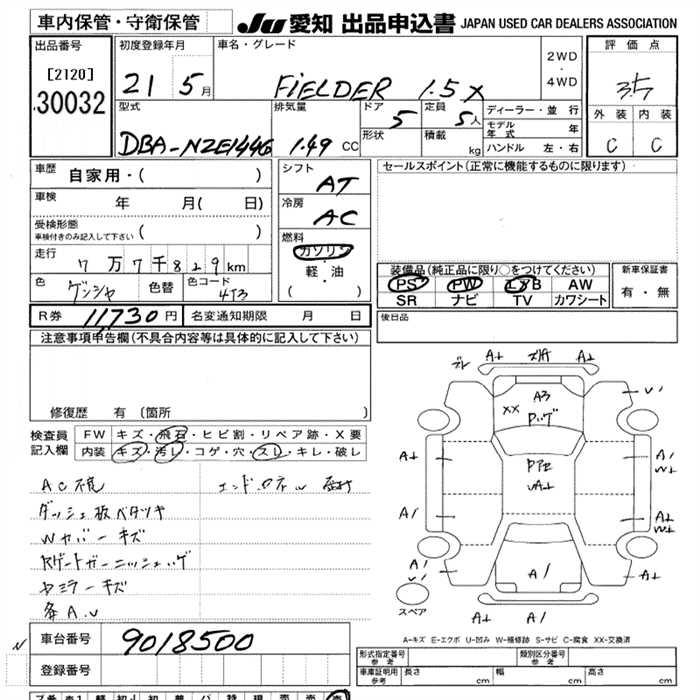 車内保管・守衛保管
JU 愛知 出品申込書 JAPAN USED CAR DEALERS ASSOCIATION
出品番号
[2120]
30032
初度登録年月
21 5月
車名・グレード
FIELDER 1.5X
2WD
・
4WD
評価点
3.5
外装 内装
C C
型式
DBA-NZE144G
排気量
1.49 CC
ドア
5
定員
5人
形状
積載
kg
ディーラー・並行
モデル年式 年
ハンドル 左・右
車歴 自家用・( )
車検 年 月( 日)
受検形態
車検付きのみ記入して下さい ( )
走行 7万7千829km
色 色替 色コード
4T3
シフト
AT
冷房
AC
燃料
ガソリン
・
軽・油
( )
セールスポイント(正常に機能するものに限ります)
装備品(純正品に限り○をつけてください)
PS PW エアB AW
SR ナビ TV カワシート
新車保証書
有・無
R券 11730円 名変通知期限 月 日
後日品
注意事項申告欄(不具合内容等は具体的に記入して下さい)
修復歴 有(箇所 )
検査員
記入欄
FW キズ・飛石・ヒビ割・リペア跡・X要
内装 キズ・汚レ・コゲ・穴・スレ・キレ・破レ
ダッシュ板ベタツキ
Wカバーキズ
ミラーキズ
A+ A+
A3
XX
A+
A1
A+
W+
A+
W+
A1
A+
A+ A1
スペア
A-キズ E-エクボ U-凹み W-補修跡 S-サビ C-腐食 XX-交換済
車台番号 9018500
登録番号
形式指定番号
参考
類別区分番号
参考
車庫証明用
参考
長さ cm 幅 cm 高さ cm